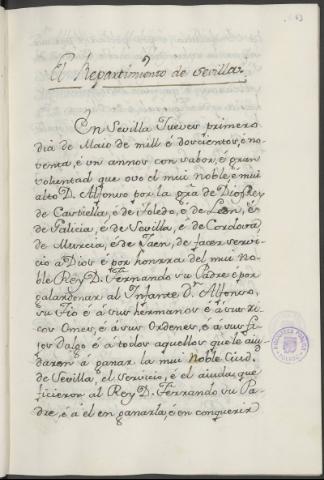 El Repartimiento de Sevilla.
En Sevilla Jueves primero
dia de Maio de mill é dovcientos, é no-
venta, é vn annos con vabor, é gran
voluntad que ovo el mui noble, é mui
alto D. Alfonso por la gra. de Dios Rey
de Castiella, é de Toledo, é de Leon, é
de Galicia, é de Sevilla, é de Cordova,
de Murcia, é de Jaen, de facer servi-
cio a Dios é por honrra del mui No-
ble Rey D. Fernando su Padre é por
galardonar al Infante Dn. Alfonso,
su Fio é a sus hermanos é a sus ri-
cos Omes, é a sus Ordenes, é a sus fi-
jos dalgo é a todos aquellos que le aiu-
daron á ganar la mui Noble Ciud.
de Sevilla, el servicio, é el aiuda, que
ficieron al Rey D. Ferrando su Pa-
dre, é á el en ganarla, é en conquerir